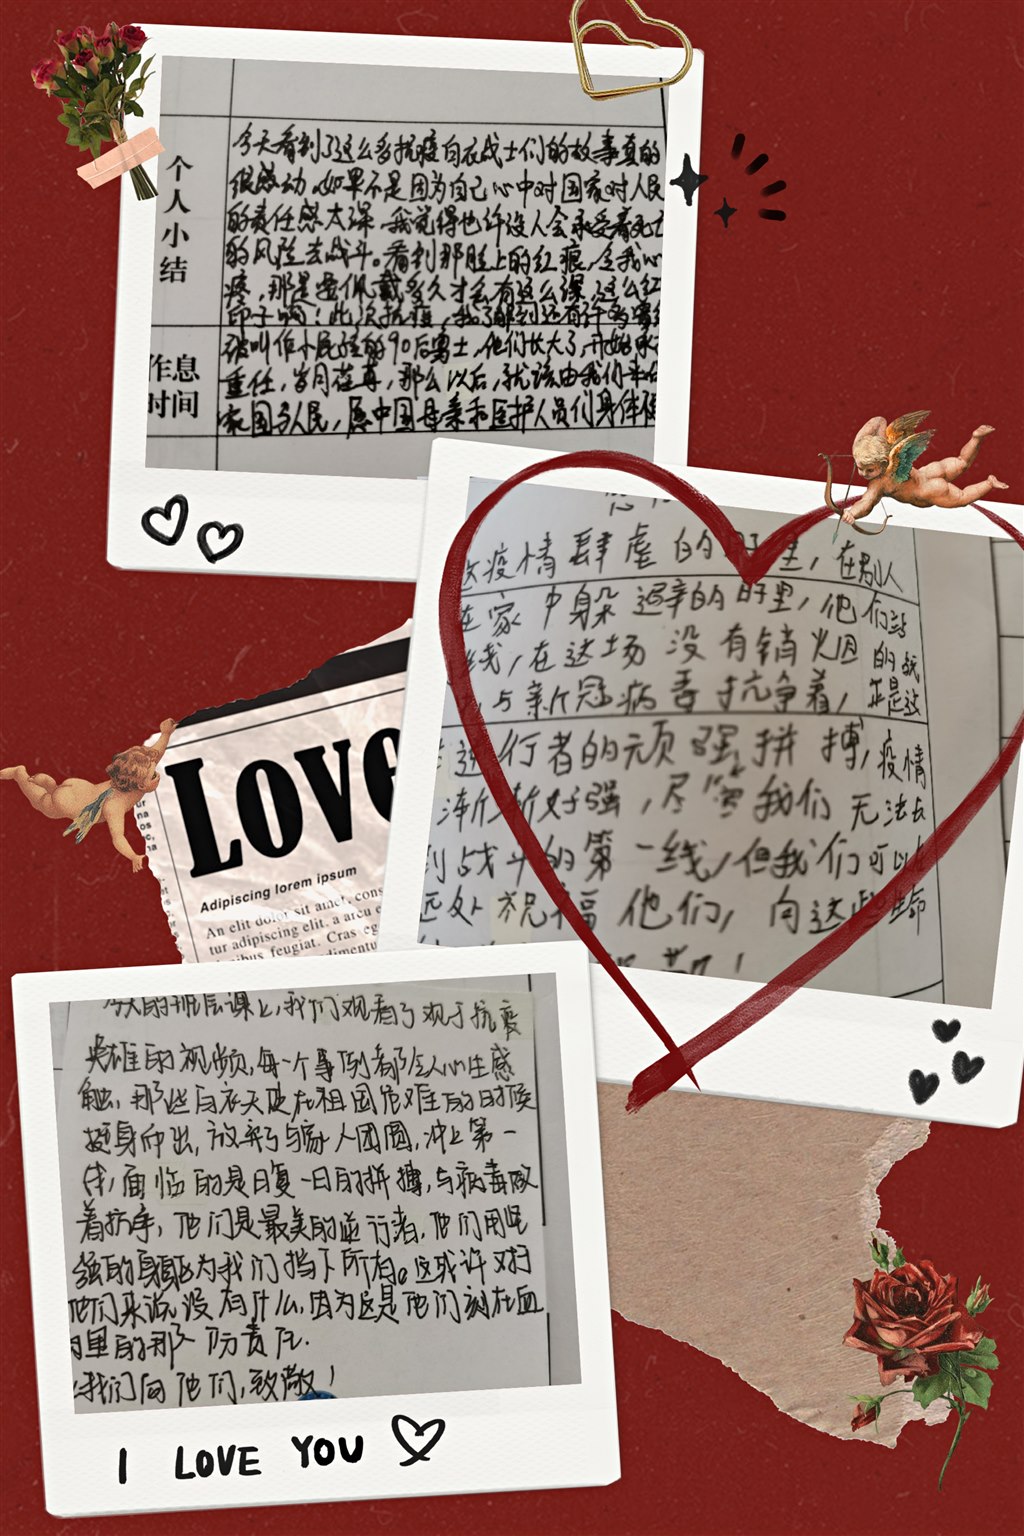 个人小结
今天看到了这么多抗疫白衣战士们的故事真的
很感动。如果不是因为自己心中对国家对人民
的责任感太深，我觉得也许没人会承受着死亡
的风险去战斗。看到那脸上的红痕，令我心
疼，那是要佩戴多久才会有这么深，这么红
印子啊！此次抗疫，我了解到还有许多曾经
作息时间
被叫作小屁孩的90后勇士，他们长大了，开始承
重任，岁月荏苒，那么以后，就该由我们来
家国为人民，愿中国母亲和医护人员们身体健
疫情肆虐的时里，在别人
在家中躲避的时里，他们站
线，在这场没有销烟的战
，与新冠病毒抗争着，正是这
逆行者的顽强拼搏，疫情
渐渐好强，尽管我们无法去
到战斗的第一线，但我们可以在
远处祝福他们，向这些
LOVE
Adipiscing lorem ipsum
An elit dolor sit amet, cons
tur adipiscing elit, a arcu
feugiat. Cras eg
今天的班层课上，我们观看了观于抗疫
英雄的视频，每一个事例都令人心生感
触，那些白衣天使在祖国危难的时候
挺身而出，放弃了与家人团圆，冲上第一
线，面临的是日复一日的拼搏，与病毒做
着抗争，他们是最美的逆行者，他们用坚
强的身躯为我们挡下所有。这或许对
他们来说没有什么，因为这是他们刻在血
里的那份责任.
我们向他们，致敬！
I LOVE YOU